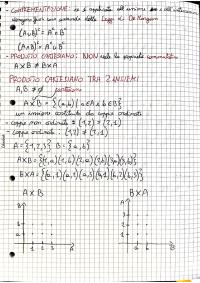 - COMPLEMENTAZIONE: se è applicata all'unione o all'intersezione
si ottengono le Leggi di De Morgan
(A∪B)ᶜ = Aᶜ∩Bᶜ
(A∩B)ᶜ = Aᶜ∪Bᶜ
- PRODOTTO CARTESIANO: NON vale la proprietà commutativa
A×B ≠ B×A
PRODOTTO CARTESIANO TRA 2 INSIEMI
A,B ≠ ∅
A×B = {(a,b) | a∈A ∧ b∈B}
un insieme costituito da coppie ordinate
- coppie non ordinate = {1,2} = {2,1}
- coppie ordinate : (1,2) ≠ (2,1)
A = {1,2,3} B = {a,b}
A×B = {(1,a)(1,b)(2,a)(2,b)(3,a)(3,b)}
B×A = {(a,1)(a,2)(a,3)(b,1)(b,2)(b,3)}
A×B B×A
1 2 3